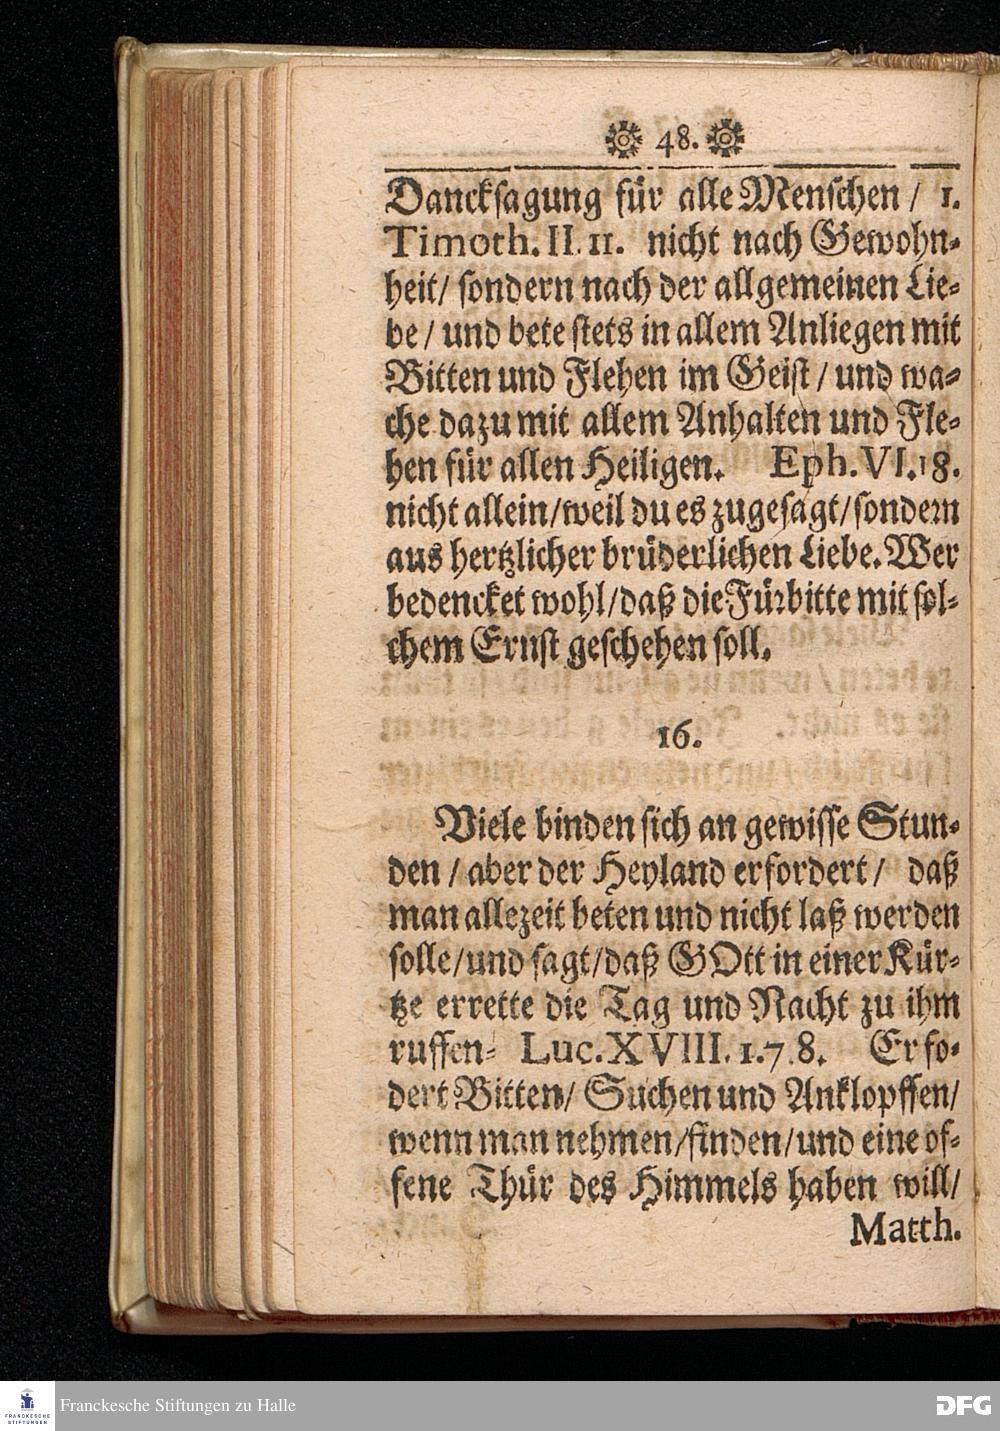 48.
Dancksagung für alle Menschen / 1.
Timoth. II. 11. nicht nach Gewohn-
heit / sondern nach der allgemeinen Lie-
be / und bete stets in allem Anliegen mit
Bitten und Flehen im Geist / und wa-
che dazu mit allem Anhalten und Fle-
hen für allen Heiligen. Eph. VI. 18.
nicht allein / weil du es zugesagt / sondern
aus hertzlicher brüderlichen Liebe. Wer
bedencket wohl / daß die Fürbitte mit sol-
chem Ernst geschehen soll.
16.
Viele binden sich an gewisse Stun-
den / aber der Heyland erfordert / daß
man allezeit beten und nicht laß werden
solle / und sagt / daß GOtt in einer Kür-
tze errette die Tag und Nacht zu ihm
ruffen- Luc. XVIII. 1. 7. 8. Er fo-
dert Bitten / Suchen und Anklopffen /
wenn man nehmen / finden / und eine of-
fene Thür des Himmels haben will /
Matth.
FRANCKESCHE
STIFTUNGEN
Franckesche Stiftungen zu Halle
DFG